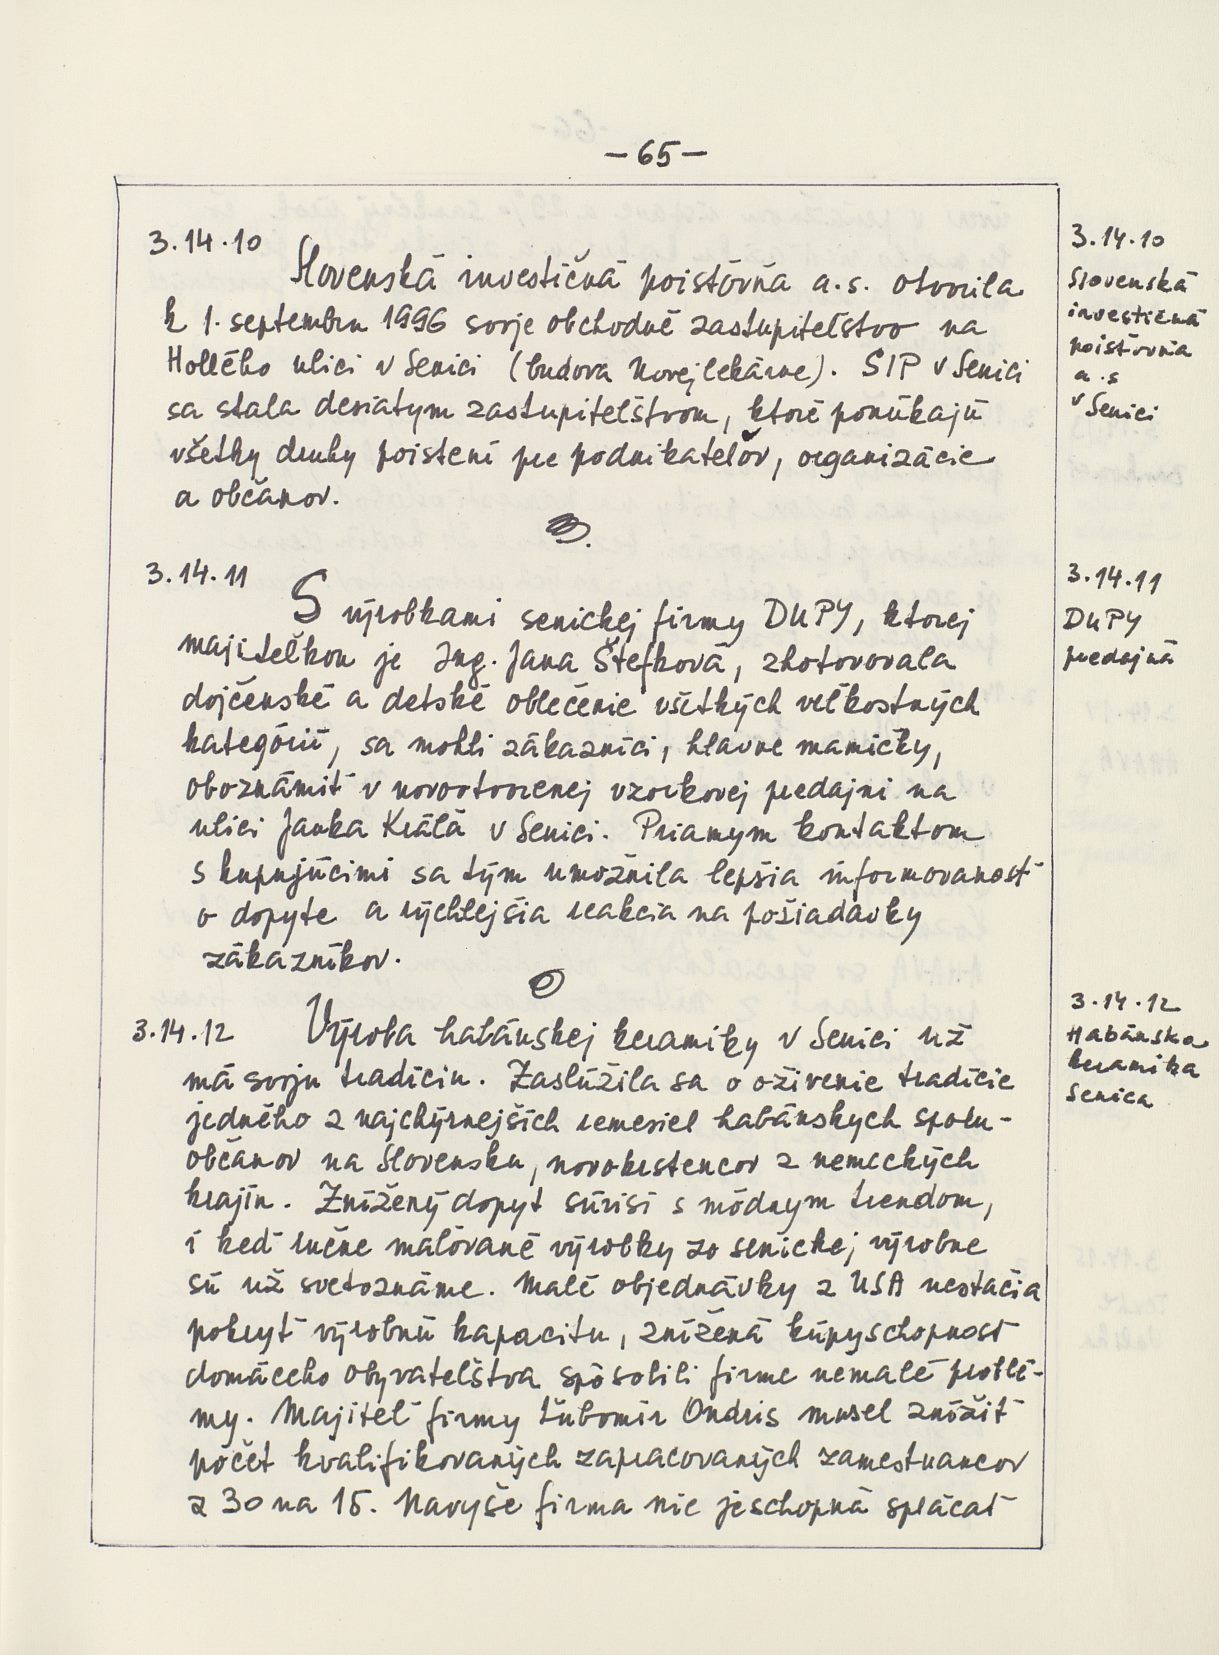 -65-
3.14.10
Slovenská investičná poisťovňa a.s. otvorila
k 1. septembru 1996 svoje obchodné zastupiteľstvo na
Hollého ulici v Senici (budova Novej lekárne). SIP v Senici
sa stala desiatym zastupiteľstvom, ktoré ponúkajú
všetky druhy poistení pre podnikateľov, organizácie
a občanov.
3.14.10
Slovenská
investičná
poisťovňa
a.s
v Senici
3.14.11
S výrobkami senickej firmy DUPY, ktorej
majiteľkou je Ing. Jana Štefková, zhotovovala
dojčenské a detské oblečenie všetkých veľkostných
kategórií, sa mohli zákazníci, hlavne mamičky,
oboznámiť v novootvorenej vzorkovej predajni na
ulici Janka Kráľa v Senici. Priamym kontaktom
s kupujúcimi sa tým umožnila lepšia informovanosť
o dopyte a rýchlejšia reakcia na požiadavky
zákazníkov.
3.14.11
DUPY
predajná
3.14.12
Výroba habánskej keramiky v Senici už
má svoju tradíciu. Zaslúžila sa o oživenie tradície
jedného z najchýrnejších remesiel habánskych spolu-
občanov na Slovensku, novokrstencov z nemeckých
krajín. Znížený dopyt súvisí s módnym trendom,
i keď ručne maľované výrobky zo senickej výrobne
sú už svetoznáme. Malé objednávky z USA nestačia
pokryť výrobnú kapacitu, znížená kúpyschopnosť
domáceho obyvateľstva spôsobili firme nemalé problé-
my. Majiteľ firmy Ľubomír Ondris musel znížiť
počet kvalifikovaných zapracovaných zamestnancov
z 30 na 15. Navyše firma nie je schopná splácať
3.14.12
Habánska
keramika
Senica